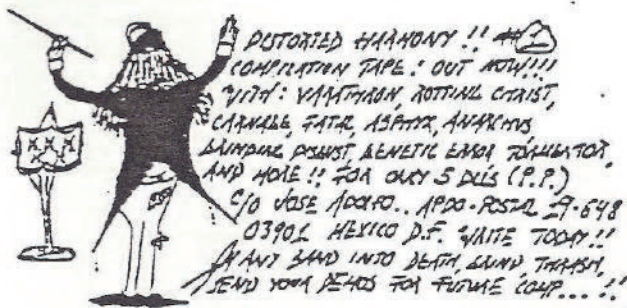 DISTORTED HARMONY !! #2
COMPILATION TAPE! OUT NOW!!!
WITH: VARATHRON, ROTTING CHRIST,
CARNAGE, FATAL, ASPHYX, ANARCHUS
GRINDING DISGUST, GENETIC ERROR,
AND MORE!! FOR ONLY 5 DLLS (P.P.)
C/O JOSE ADOLFO.. APDO-POSTAL 29-648
03901 MEXICO D.F. WRITE TODAY!!
ANY BAND INTO DEATH, GRIND, THRASH,
SEND YOUR DEMOS FOR FUTURE COMP...!!